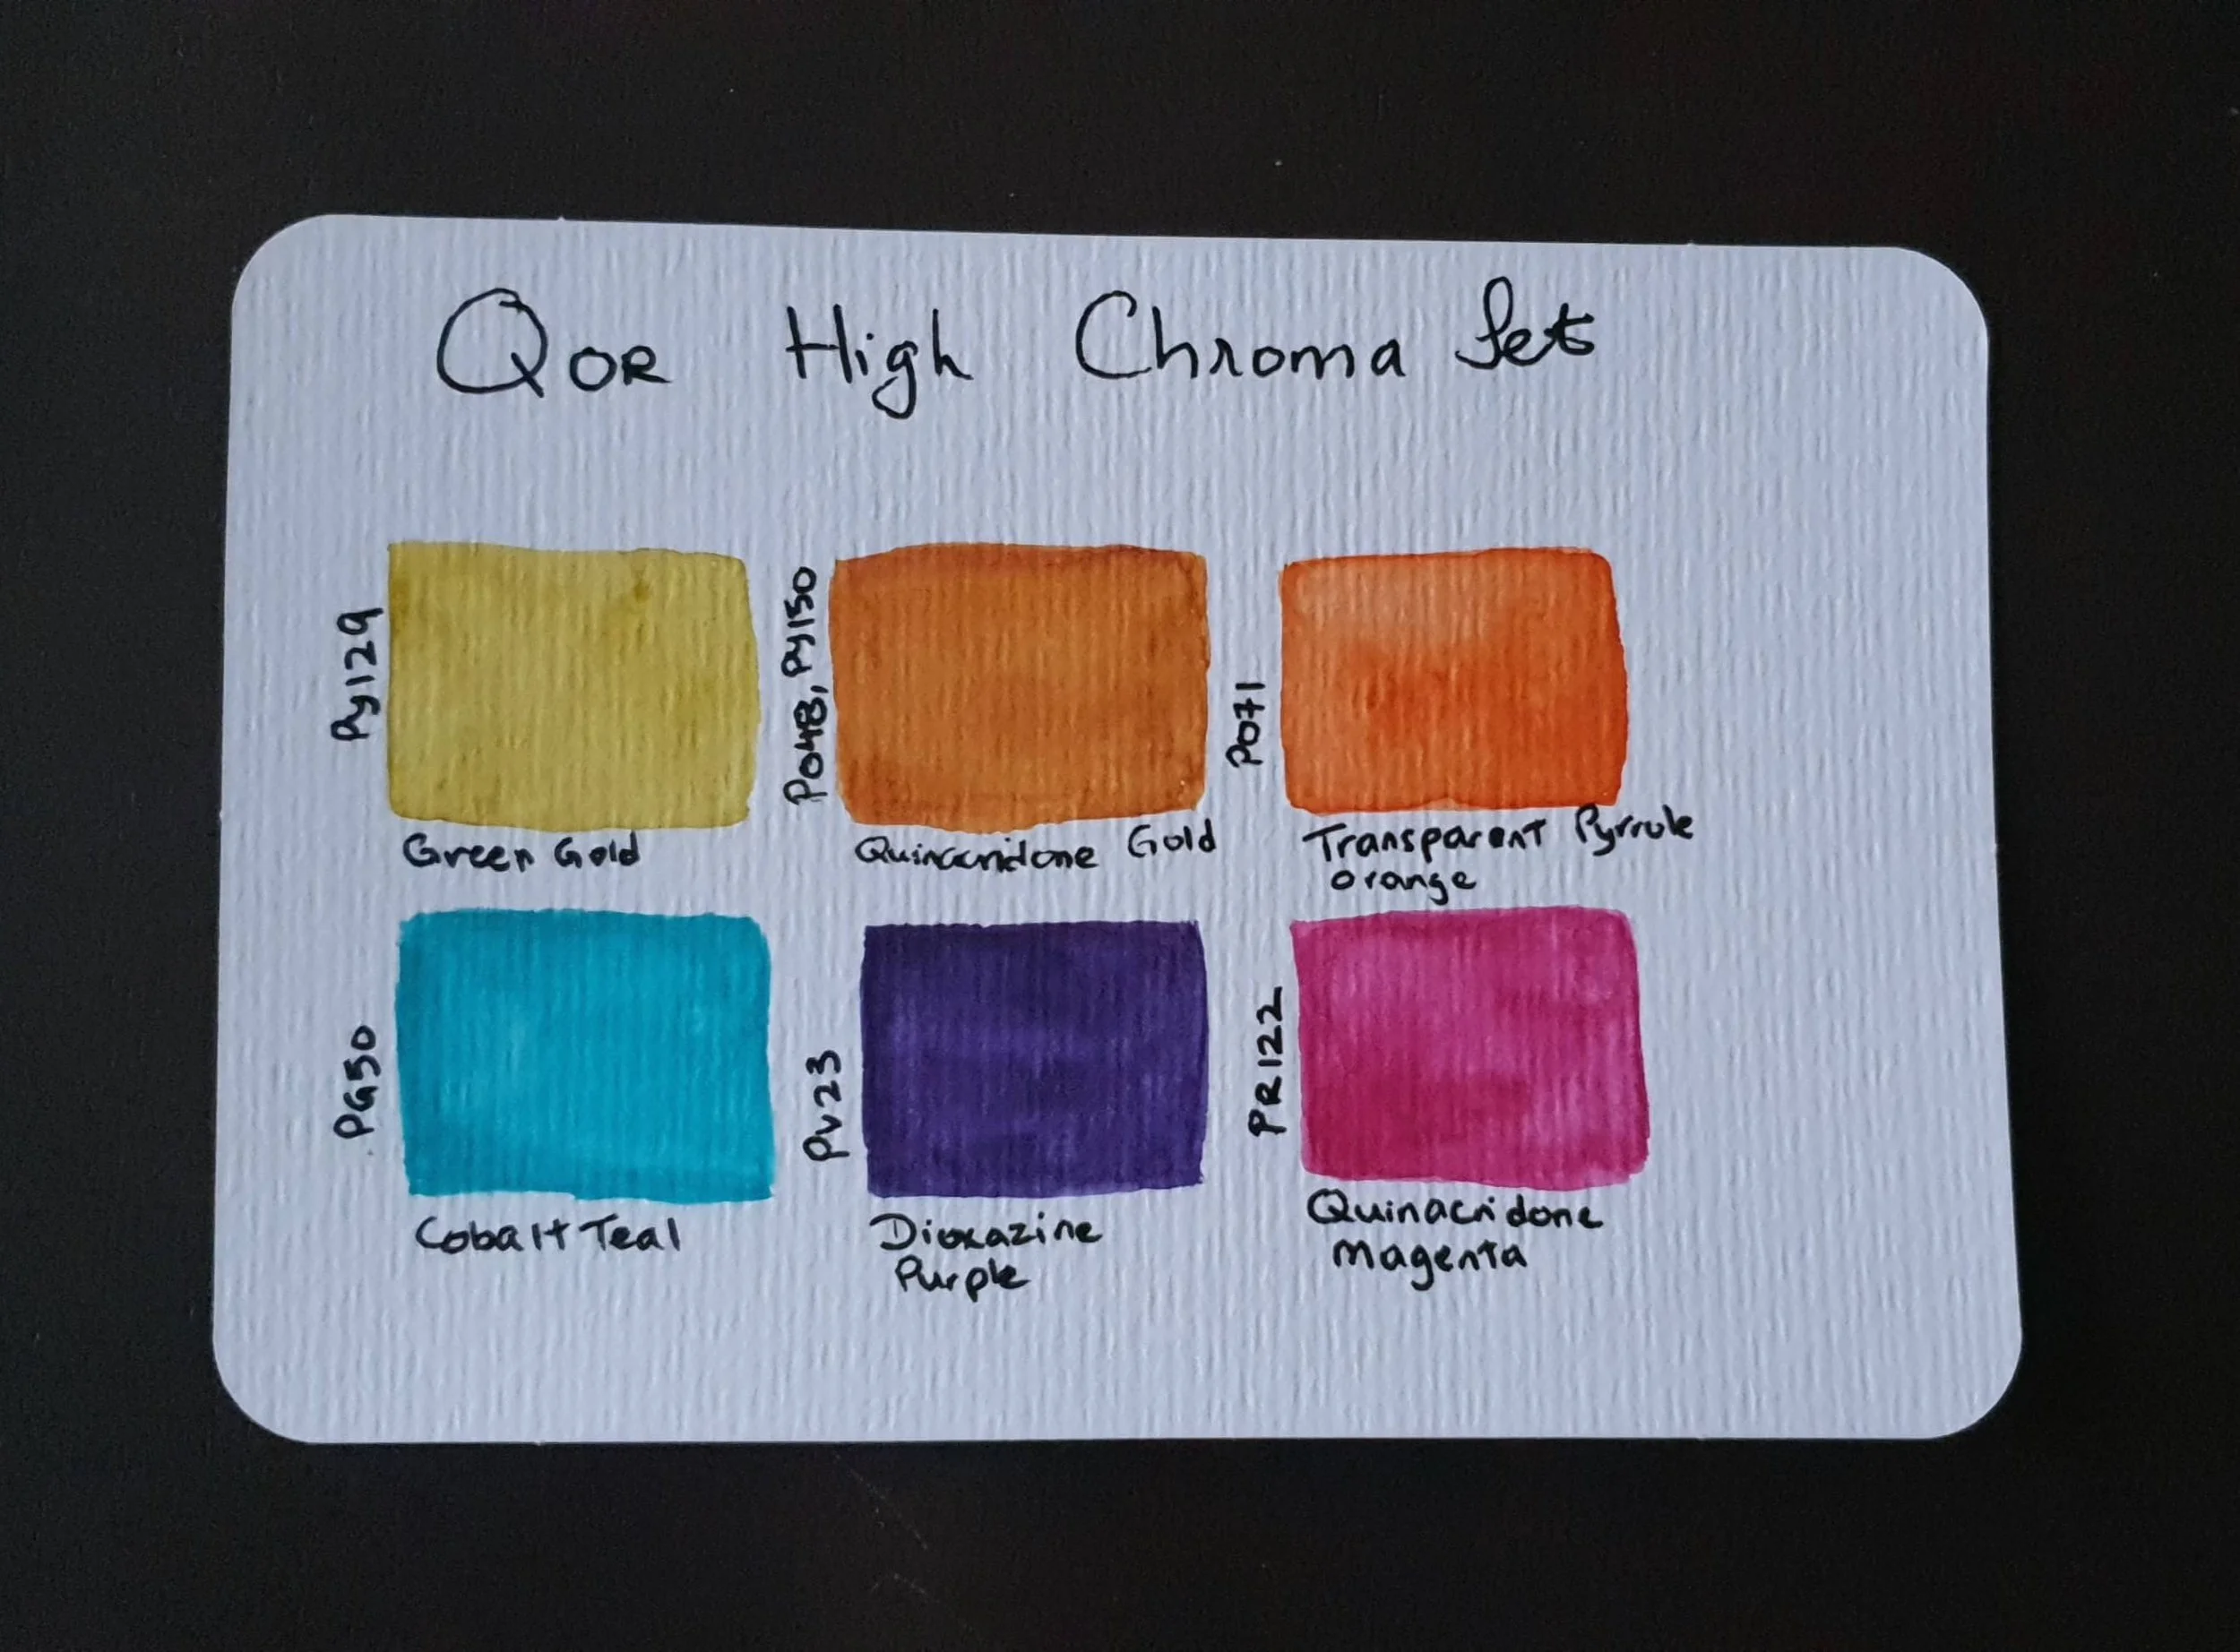 QOR High Chroma Set
Py129
Green Gold
PO48, Py150
Quinacridone Gold
PO71
Transparent Pyrrole
orange
PG50
Cobalt Teal
PV23
Dioxazine
Purple
PR122
Quinacridone
Magenta